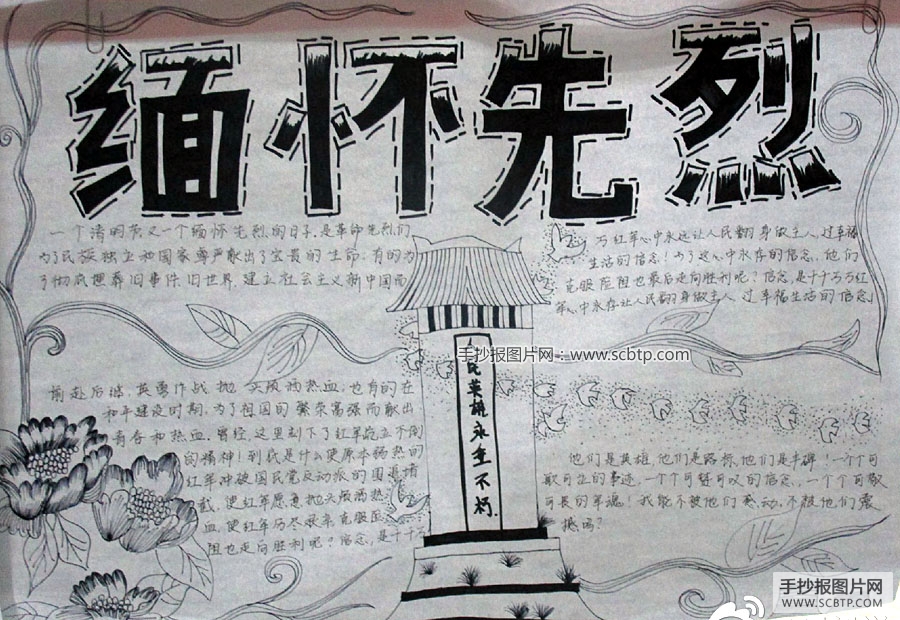 缅怀先烈
一个清明节又一个缅怀先烈的日子.是革命先烈们
为了民族独立和国家尊严献出了宝贵的生命;有的为
了彻底埋葬旧事件.旧世界,建立社会主义新中国而
前赴后继,英勇作战抛 头颅洒热血;也有的在
和平建设时期,为了祖国的繁荣富强而献出
青春和热血.曾经,这里刻下了红军屹立不倒
的精神!到底是什么使原本弱势的
红军冲破国民党反动派的围追堵
截,使红军愿意抛头颅洒热
血,使红军历尽艰辛,克服
阻也走向胜利呢?信念,是千千
万红军心中永远让人民翻身做主人,过幸福
生活的信念!为了这心中永存的信念,他们
克服险阻也最后走向胜利呢?信念,是千千万万红
军心中永存让人民翻身做主人 过幸福生活的信念!
他们是英雄,他们是路标,他们是丰碑!一个个可
歌可泣的事迹,一个个可 的信念,一个个可歌
可 的军魂!我能不被他们感动,不被他们震
撼吗?
人民英雄永垂不朽.
手抄报图片网:www.scbtp.com
手抄报图片网
www.scbtp.com